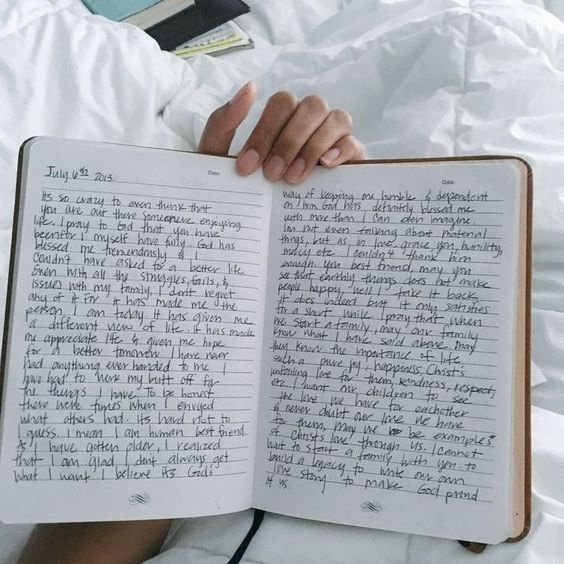 July 6th 2013.
Date:
Its so crazy to even think that
you are out there somewhere enjoying
life. I pray to God that you have
been for I myself have fully. God has
blessed me tremendously & I
couldn't have asked for a better life.
Even with all the struggles, fails, &
issues with my family, I don't regret
any of it for it has made me the
person I am today. It has given me
a different view of life. It has made
me appreciate life & given me hope
for a better tomorrow. I have never
had anything ever handed to me I
have had to work my butt off for
the things I have. To be honest
there were times when I envied
what others had. Its hard not to
I guess. I mean I am human best friend
As I have gotten older, I realized
that I am glad I dont always get
what I want. I believe its God's
Date:
way of keeping me humble & dependent
on him. God has definitly blessed me
with more than I can even imagine.
Im not even talking about material
things, but as in love, grace, joy, humility,
mercy etc. couldn't thank him
enough. You best friend, may you
see that earthly things does not make
people happy, well I take it back
it does indeed but it only satisfies
for a short while. I pray that when
we start a family, may our family
know what I have said above. May
they know the importance of life
such a pure joy, happiness, Christ's
unfailing love for them, kindness, respect,
etc. I want our children to see
the love we have for eachother
& never doubt our love we have
for them, may we be examples
of Christ's love through us. I cannot
wait to start a family with you. to
build a legacy to write our own
love story to make God proud
of us.